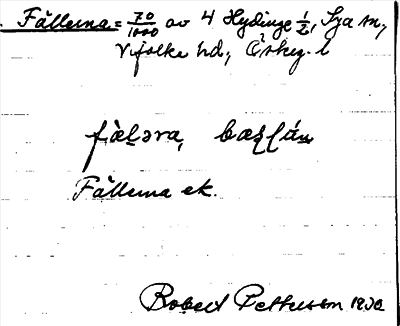 Fällerna = 70/1000 av 4 Hydinge 1/2, Sya sn,
Vifolka hd, Österg. l
fä̀lǝra, bæʂʈán
Fällerna ek.
Robert Pettersson 1930